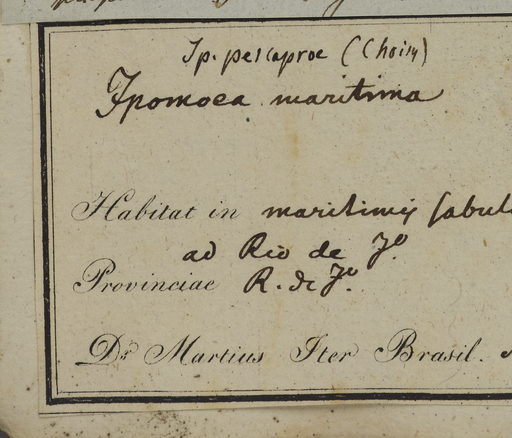 Ip. pescaproe (Choisy)
Ipomoea maritima
Habitat in maritimis sabul
ad Rio de Jº.
Provinciae R. de Jº.
Dr. Martius Iter Brasil.